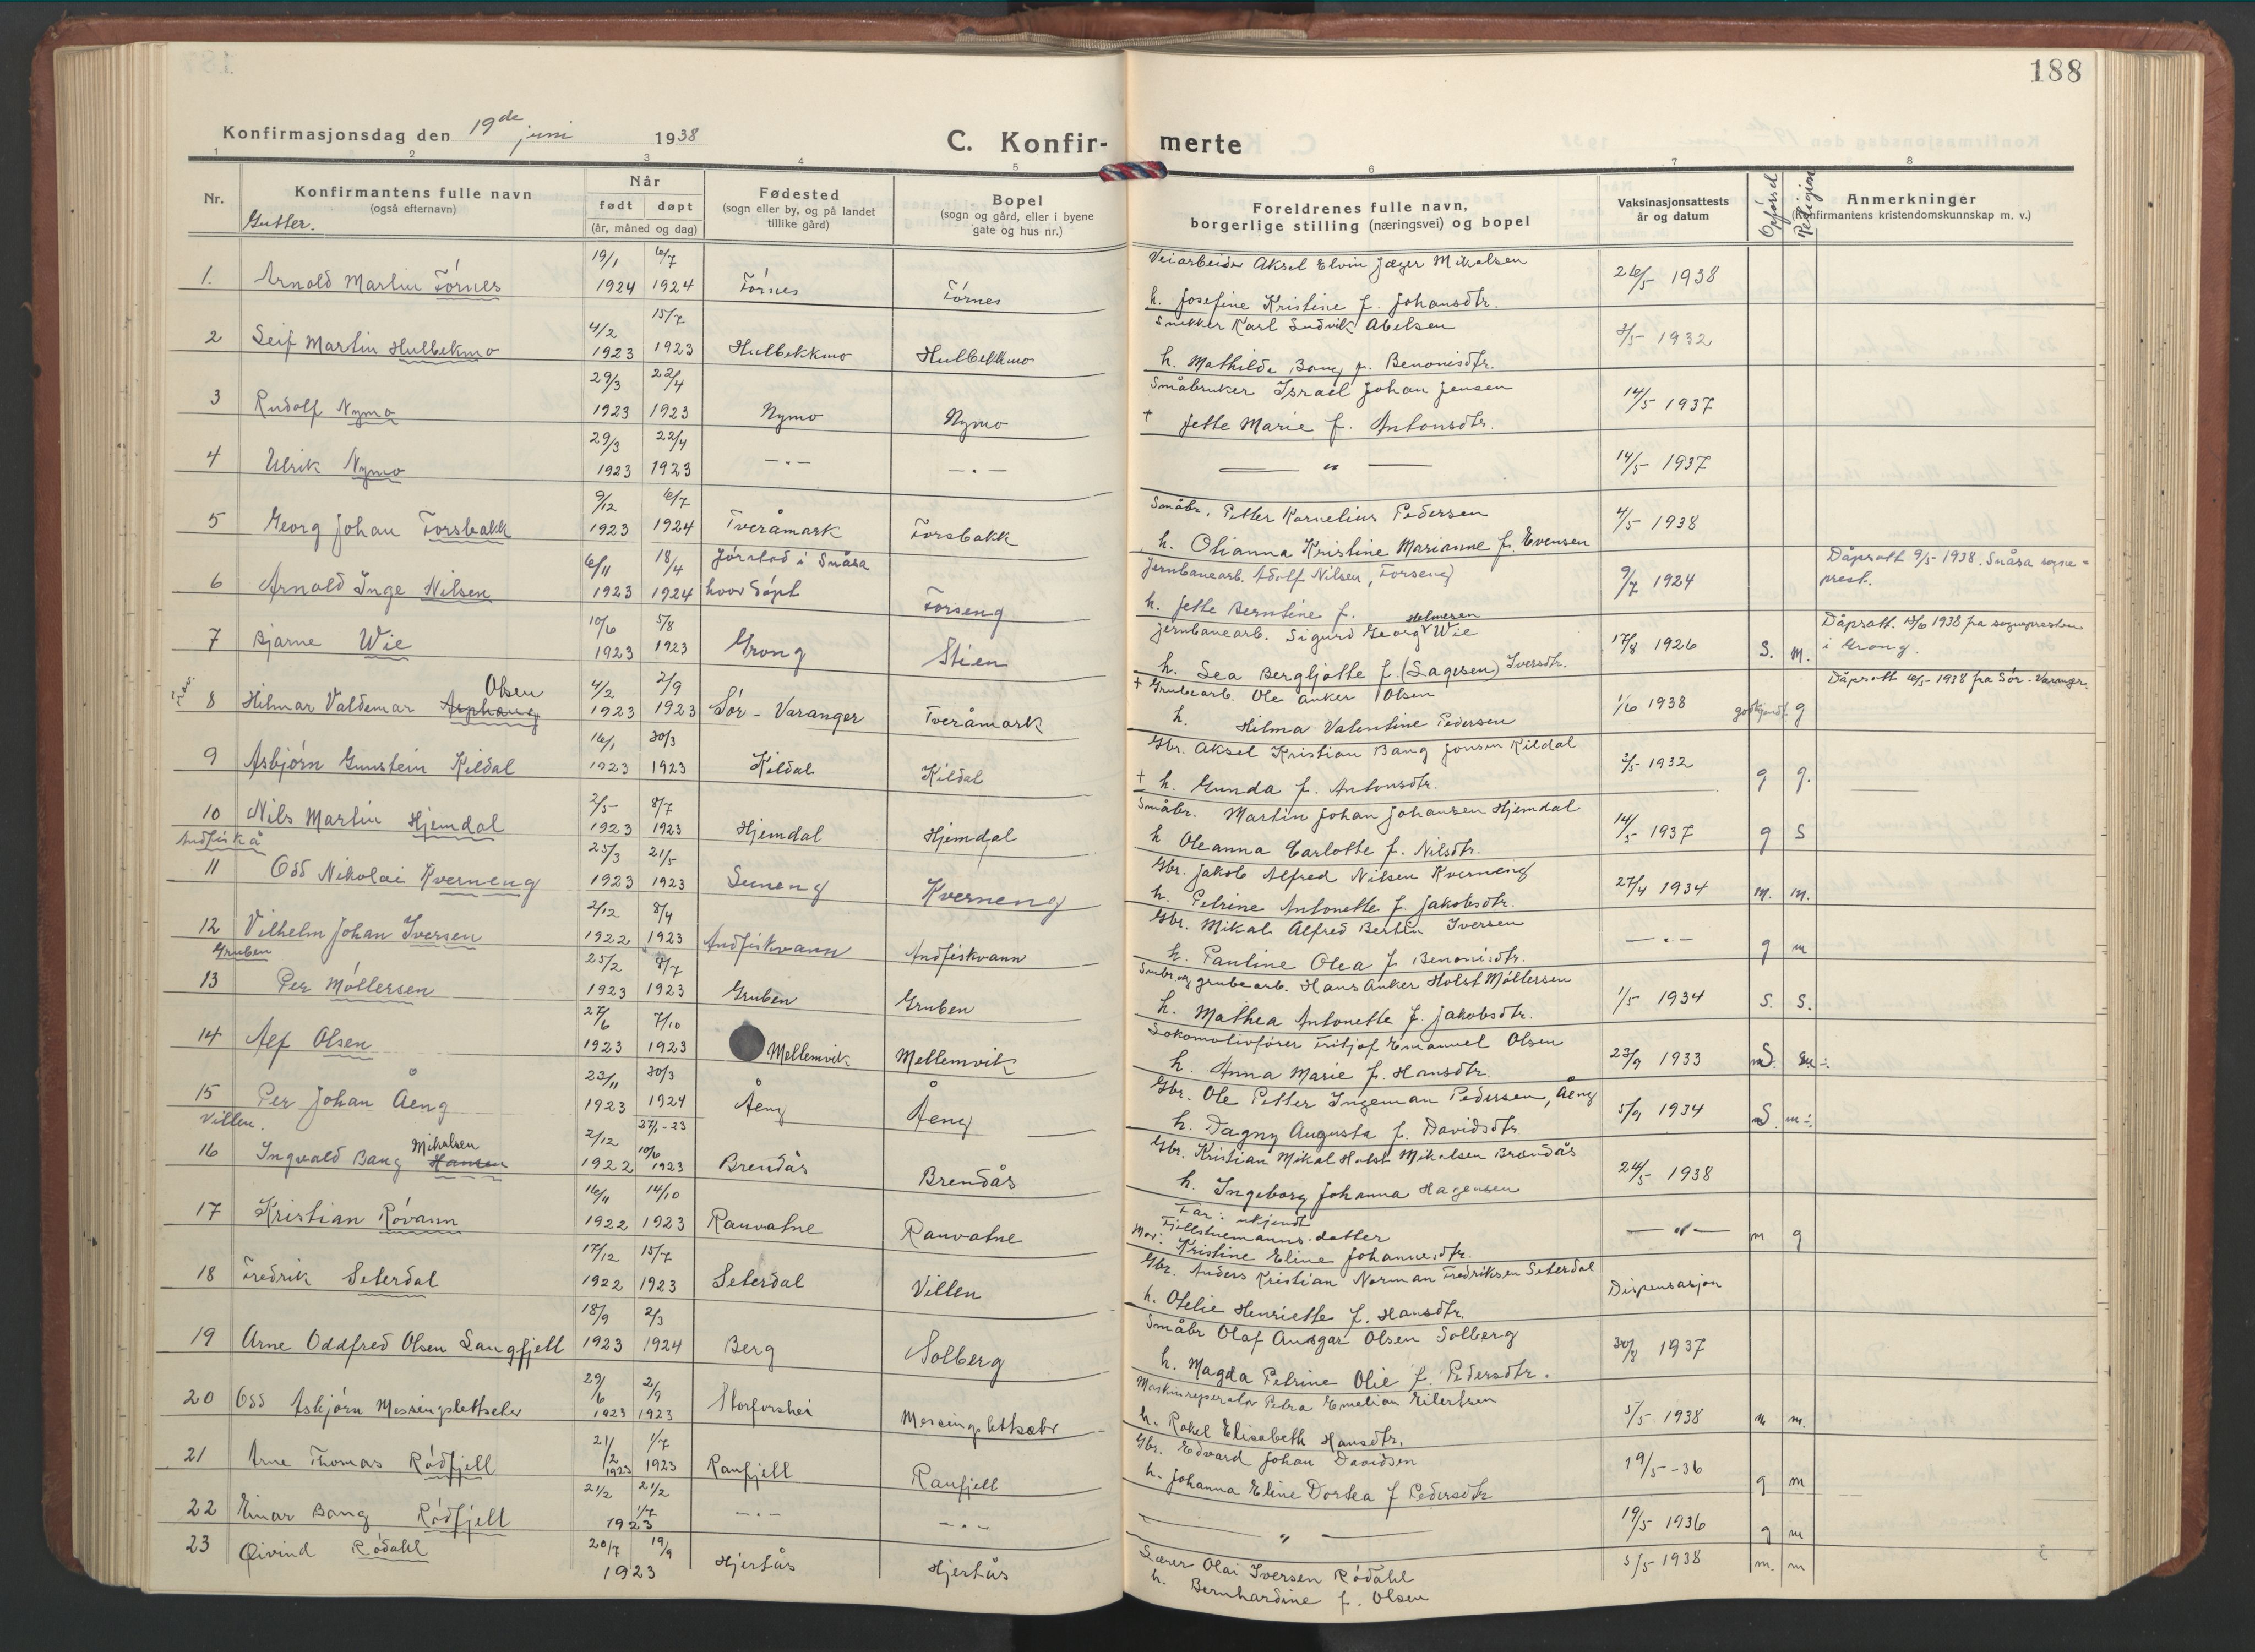 188
Konfirmasjonsdag den 19de juni 1938
C. Konfir- merte
1 2 3 4 5 6 7 8
Nr.
Konfirmantens fulle navn
(også efternavn)
Gutter.
Når
født døpt
(år, måned og dag)
Fødested
(sogn eller by, og på landet
tillike gård)
Bopel
(sogn og gård, eller i byene
gate og hus nr.)
Foreldrenes fulle navn,
borgerlige stilling (næringsvei) og bopel
Vaksinasjonsattests
år og datum
Opførsel
Religion
Anmerkninger
(Konfirmantens kristendomskunnskap m. v.)
1. Arnold Martin Fórnes 19/1 1924 6/7 1924 Fórnes Fórnes
Veiarbeider Aksel Elvin Jæger Mikalsen
h. Josefine Kristine f. Johansdtr.
26/5 1938
2 Leif Martin Hulbekmo 4/2 1923 15/7 1923 Hulbekkmo Hulbekkmo
Snekker Karl Ludvik Abelsen
h. Mathilde Bang f. Benonisdtr.
3/5 1932
3 Rudolf Nymo 29/3 1923 22/4 1923 Nymo Nymo
Småbruker Israel Johan Jensen
+ Jette Marie f. Antonsdtr.
14/5 1937
4 Ulrik Nymo 29/3 1923 22/4 1923 —"— —"—
—"—
14/5 1937
5 Georg Johan Forsbakk 9/12 1923 6/7 1924 Tveråmark Forsbakk
Småbr. Petter Kornelius Pedersen
h. Olianna Kristine Marianne f. Evensen
4/5 1938
6 Arnold Inge Nilsen 6/11 1923 18/4 1924 Jørstad i Snåsa
hvor døpt Forseng
Jernbanearb. Adolf Nilsen, Forseng
h. Jette Berntine f.
9/7 1924
Dåpsatt. 9/5-1938. Snåsa sogne=
prest.
7 Bjarne Wie 10/6 1923 5/8 1923 Grong Stien
Helmersen
Jernbanearb. Sigurd Georg Wie
h. Lea Bergljotte f. (Lagesen) Iversdtr.
17/8 1926 S. M.
Dåpsatt. 13/6 1938 fra sognepresten
i Grong.
8 Hilmar Valdemar Asphaug Olsen 4/2 1923 2/9 1923 Sør-Varanger Tveråmark
+ Grubearb. Ole Anker Olsen
h. Hilma Valentine Pedersen
1/6 1938 godkjendt g
Dåpsatt 10/5-1938 fra Sør-Varangr.
9 Asbjørn Gunstein Kildal 16/1 1923 30/3 1923 Kildal Kildal
Gbr. Aksel Kristian Bang Jonsen Kildal
+ h. Gunda f. Antonsdtr.
3/5 1932 g g.
10 Nils Martin Hjemdal 2/5 1923 8/7 1923 Hjemdal Hjemdal
Småbr. Martin Johan Johansen Hjemdal
h Oleanna Carlotte f. Nilsdtr.
14/5 1937 g S
Andfiskå
11 Odd Nikolai Kverneng 25/3 1923 21/5 1923 Kverneng
Gbr. Jakob Alfred Nilsen Kverneng
h. Petrine Antonette f. Jakobsdtr.
27/4 1934 m. m.
12 Vilhelm Johan Iversen 2/12 1922 8/4 1923 Andfiskvann Andfiskvann
Gbr. Mikal Alfred Bertin Iversen
h. Pauline Olea f. Benonisdtr.
—"— g m
Gruben
13 Per Møllersen 25/2 1923 8/7 1923 Gruben Gruben
Småbr og grubearb. Hans Anker Holst Møllersen
h. Mathea Antonette f. Jakobsdtr.
1/5 1934 S. S.
14 Alf Olsen 27/6 1923 7/10 1923 Mellemvik Mellemvik
Lokomotivfører Fritjof Emanuel Olsen
h. Anna Marie f. Hansdtr.
23/9 1933
15 Per Johan Åeng 23/11 1923 30/3 1924 Åeng Åeng
Gbr. Ole Petter Ingeman Pedersen, Åeng
h. Dagny Augusta f. Davidsdtr.
5/9 1934 m÷
Villen.
16 Ingvald Bang Hansen Mikalsen 2/12 1922 27/1-23 10/6 1923 Brendås Brendås
Gbr. Kristian Mikal Holst Mikalsen Brendås
h. Ingeborg Johanna Hagensen
24/5 1938
17 Kristian Róvann 16/11 1922 14/10 1923 Ranvatne Ranvatne
Far: ukjendt
Fjellstuemanns datter
Mor: Kristine Eline Johannesdtr.
—"— m g
18 Fredrik Seterdal 17/12 1922 15/7 1923 Seterdal Villen
Gbr. Anders Kristian Norman Fredriksen Seterdal
h. Otelie Henriette f. Hansdtr.
Dispensasjon
19 Arne Oddfred Olsen Langfjell 18/9 1923 2/3 1924 Berg Solberg
Småbr Olaf Ansgar Olsen Solberg
h. Magda Petrine Olie f. Pedersdtr.
30/8 1937
20 Odd Asbjørn Messingslettseter 29/6 1923 2/9 1923 Storforshei Messingslettsetr
Maskinreperatør Petra Emelian Eilertsen
h. Rakel Elisabeth Hansdtr.
5/5 1938 m m.
21 Arne Thomas Rødfjell 21/2 1923 1/7 1923 Ranfjell Ranfjell
Gbr. Edvard Johan Davidsen
h. Johanna Eline Dortea f Pedersdtr
19/5-36 g m
22 Einar Bang Rødfjell 21/2 21/2 1/7 1923 —"— —"—
—"—
19/5 1936 g m
23 Øivind Rødahl 20/7 19/9 1923 Hjertås Hjertås
Lærer Olai Iversen Rødahl
h. Bernhardine f. Olsen
5/5 1938 m. m